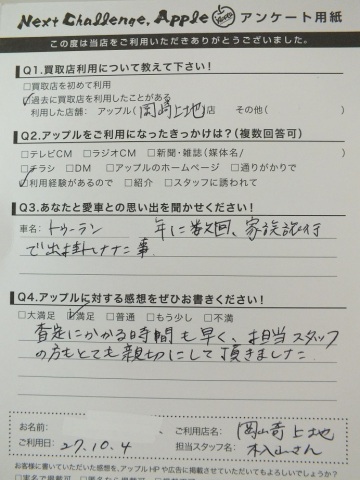 Next Challenge, Apple アンケート用紙
この度は当店をご利用いただきありがとうございました。
Q1.買取店利用について教えて下さい!
□買取店を初めて利用
□過去に買取店を利用したことがある
利用した店舗: アップル(岡崎上地)店 その他( )
Q2.アップルをご利用になったきっかけは?(複数回答可)
□テレビCM □ラジオCM □新聞・雑誌(媒体名/ )
□チラシ □DM □アップルのホームページ □通りがかりで
□利用経験があるので □紹介 □スタッフに誘われて
Q3.あなたと愛車との思い出を聞かせください!
車名: トゥーラン 年に数回、家族旅行
で出掛けた事
Q4.アップルに対する感想をぜひお書きください!
□大満足 □満足 □普通 □もう少し □不満
査定にかかる時間も早く、担当スタッフ
の方もとても親切にして頂きました
お名前:
ご利用店名: 岡崎上地
ご利用日: 27.10.4
担当スタッフ名: さん
お客様に書いていただいた感想を、アップルHPや広告に掲載させていただいてもよろしいでしょうか?